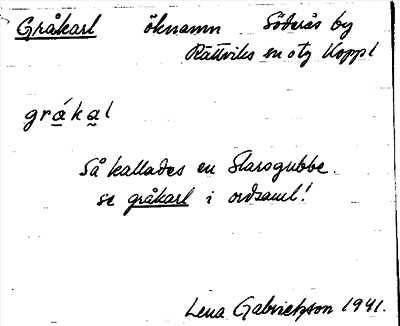 Gråkarl öknamn Söderås by
Rättviks sn otg Kopp l
gråkal
Så kallades en Slarsgubbe.
se gråkarl i ordsaml!
Lena Gabrielsson 1941.